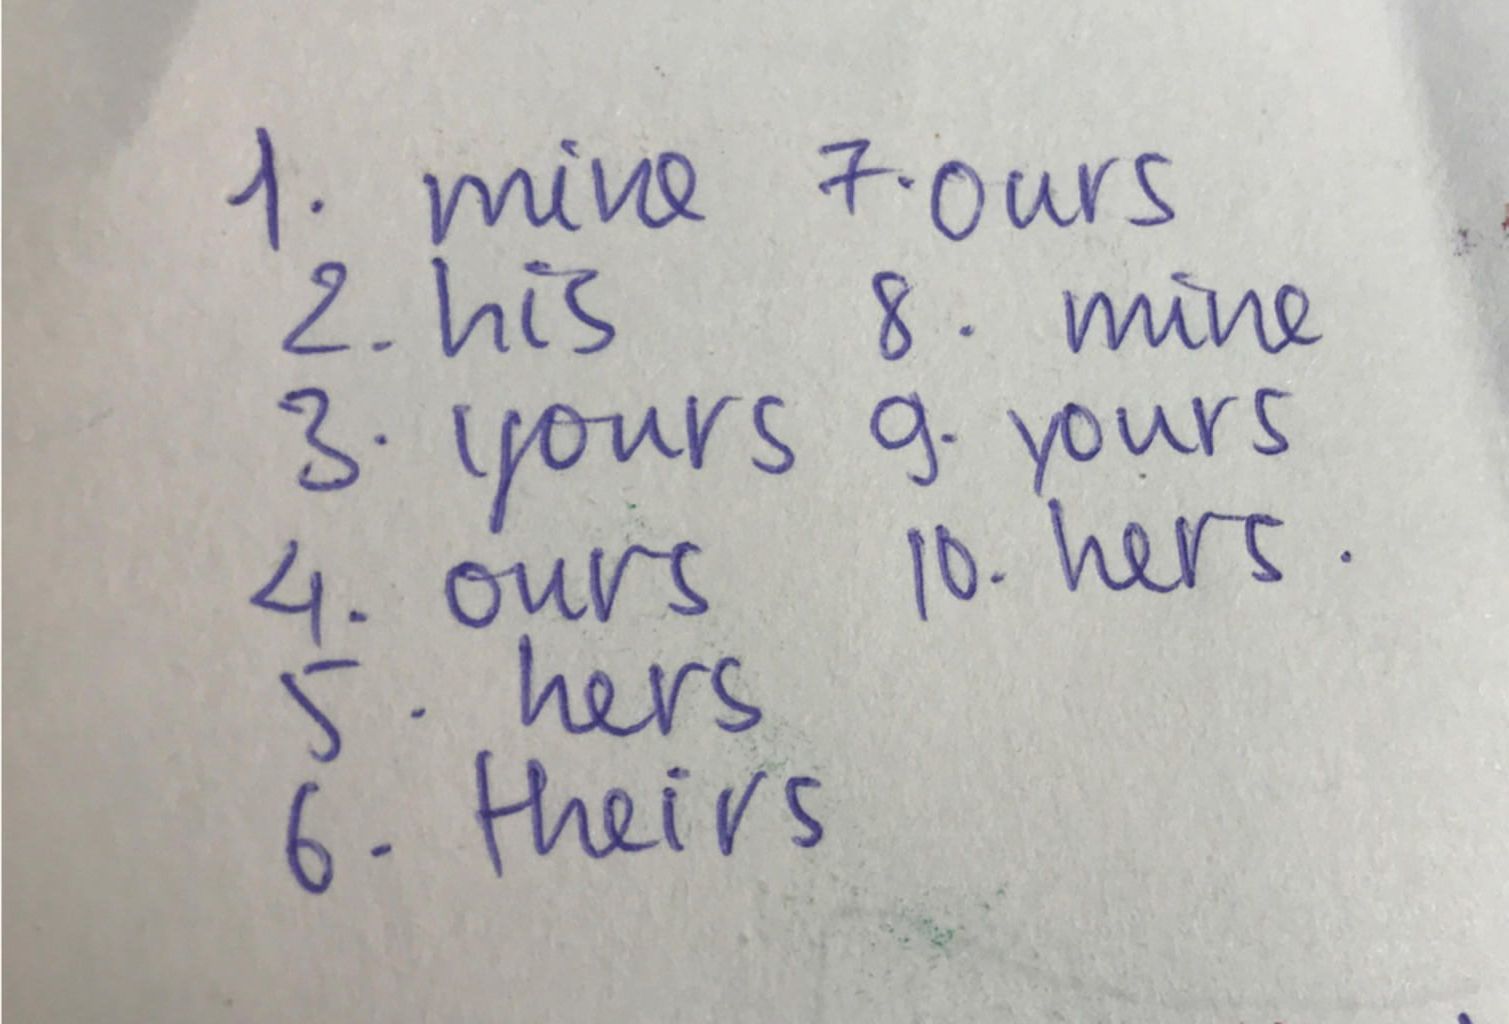 1. mine
2. his
3. yours
4. ours
5. hers
6. theirs
7. ours
8. mine
9. yours
10. hers.